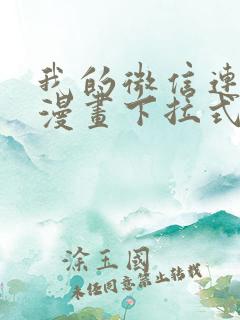 我的微信連
漫畫下拉式
涂玉國
未经同意禁止转载